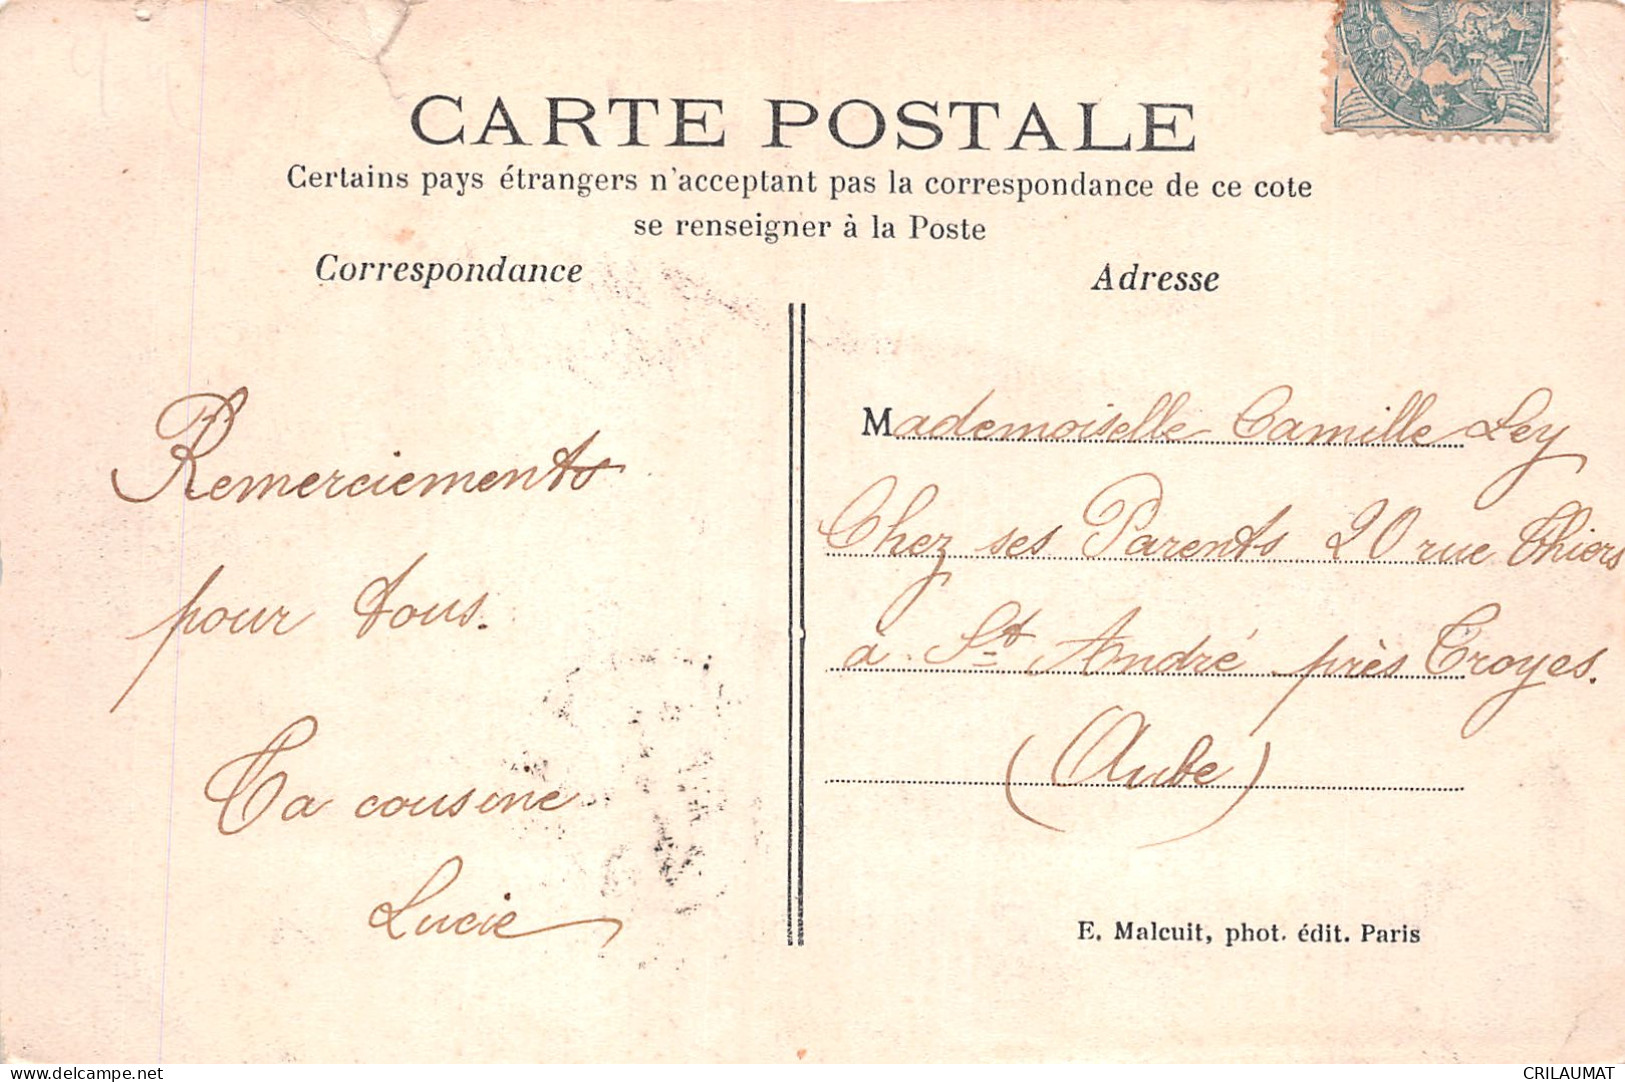 CARTE POSTALE
Certains pays étrangers n'acceptant pas la correspondance de ce cote
se renseigner à la Poste
Correspondance
Adresse
Remerciements
pour tous.
Ta cousine
Lucie
Mademoiselle Camille Ley
Chez ses Parents 20 rue Thiers
à St André près Troyes.
(Aube)
E. Malcuit, phot. édit. Paris
www.delcampe.net
CRILAUMAT